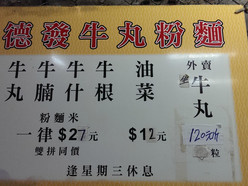 德發牛丸粉麵
牛丸
牛腩
牛什
牛根
油菜
粉麵米
一律$27元
$12元
雙拼同價
逢星期三休息
外賣
牛丸
120元斤
粒